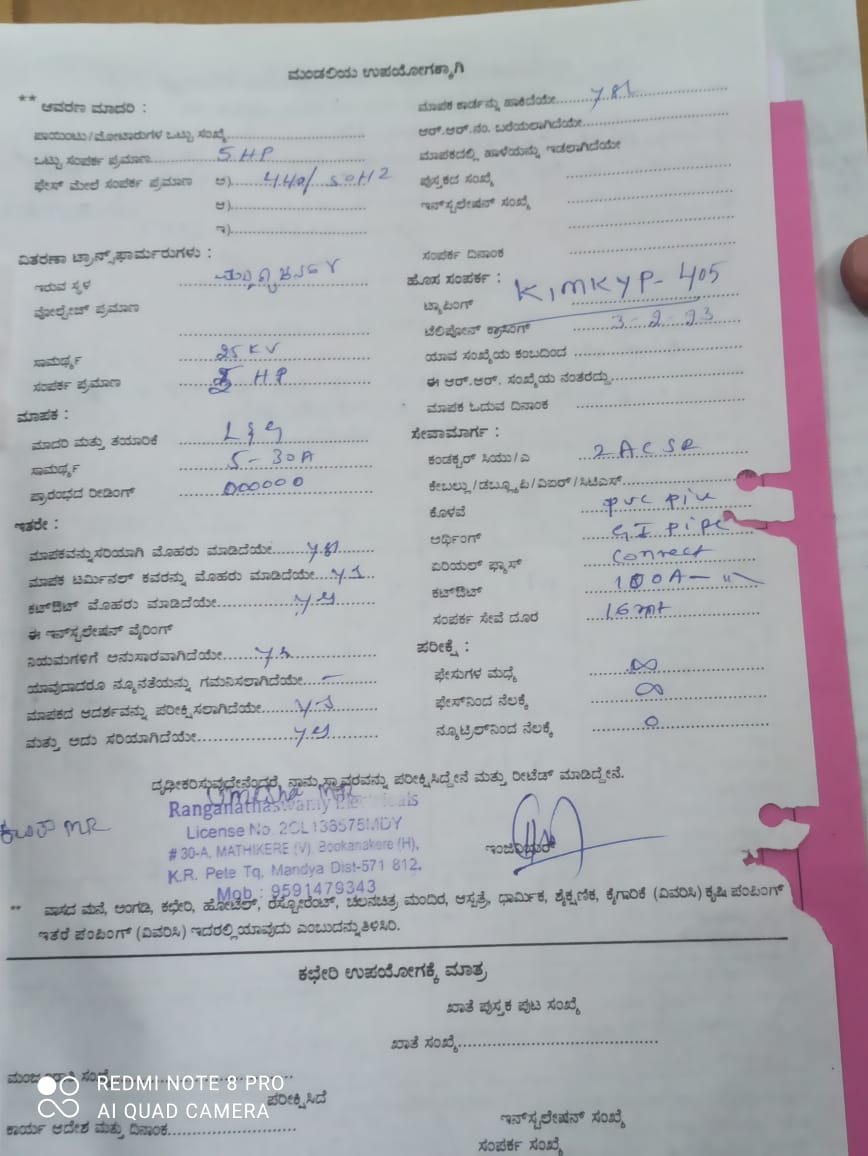 ಮಂಡಲಿಯ ಉಪಯೋಗಕ್ಕಾಗಿ
** ಆವರಣ ಮಾದರಿ :
ಪಾಯಿಂಟು/ಮೋಟಾರುಗಳ ಒಟ್ಟು ಸಂಖ್ಯೆ
ಒಟ್ಟು ಸಂಪರ್ಕ ಪ್ರಮಾಣ 5 HP
ಫೇಸ್ ಮೇಲೆ ಸಂಪರ್ಕ ಪ್ರಮಾಣ ಅ) 440/ 50HZ
ಆ)
ಇ)
ವಿತರಣಾ ಟ್ರಾನ್ಸ್‌ಫಾರ್ಮರುಗಳು :
ಇರುವ ಸ್ಥಳ
ವೋಲ್ಟೇಜ್ ಪ್ರಮಾಣ
ಸಾಮರ್ಥ್ಯ 25 KV
ಸಂಪರ್ಕ ಪ್ರಮಾಣ HP
ಮಾಪಕ :
ಮಾದರಿ ಮತ್ತು ತಯಾರಿಕೆ L&G
ಸಾಮರ್ಥ್ಯ 5-30A
ಪ್ರಾರಂಭದ ರೀಡಿಂಗ್ 000000
ಇತರೇ :
ಮಾಪಕವನ್ನು ಸರಿಯಾಗಿ ಮೊಹರು ಮಾಡಿದೆಯೇ
ಮಾಪಕ ಟರ್ಮಿನಲ್ ಕವರನ್ನು ಮೊಹರು ಮಾಡಿದೆಯೇ
ಕಟ್‌ಔಟ್ ಮೊಹರು ಮಾಡಿದೆಯೇ
ಈ ಇನ್‌ಸ್ಟಲೇಷನ್ ವೈರಿಂಗ್
ನಿಯಮಗಳಿಗೆ ಅನುಸಾರವಾಗಿದೆಯೇ
ಯಾವುದಾದರೂ ನ್ಯೂನತೆಯನ್ನು ಗಮನಿಸಲಾಗಿದೆಯೇ —
ಮಾಪಕದ ಆದರ್ಶವನ್ನು ಪರೀಕ್ಷಿಸಲಾಗಿದೆಯೇ
ಮತ್ತು ಅದು ಸರಿಯಾಗಿದೆಯೇ
ಮಾಪಕ ಕಾರ್ಡನ್ನು ಹಾಕಿದೆಯೇ
ಆರ್.ಆರ್.ನಂ. ಬರೆಯಲಾಗಿದೆಯೇ
ಮಾಪಕದಲ್ಲಿ ಹಾಳೆಯನ್ನು ಇಡಲಾಗಿದೆಯೇ
ಪುಸ್ತಕದ ಸಂಖ್ಯೆ
ಇನ್‌ಸ್ಟಲೇಷನ್ ಸಂಖ್ಯೆ
ಸಂಪರ್ಕ ದಿನಾಂಕ
ಹೊಸ ಸಂಪರ್ಕ :
KIMKYP-405
ಟ್ಯಾಪಿಂಗ್
ಟೆಲಿಫೋನ್ ಕ್ರಾಸಿಂಗ್ 3-2-23
ಯಾವ ಸಂಖ್ಯೆಯ ಕಂಬದಿಂದ
ಈ ಆರ್.ಆರ್. ಸಂಖ್ಯೆಯ ನಂತರದ್ದು
ಮಾಪಕ ಓದುವ ದಿನಾಂಕ
ಸೇವಾಮಾರ್ಗ :
ಕಂಡಕ್ಟರ್ ಸಿಯು/ಎ 2 ACSR
ಕೇಬಲ್ಲು/ಡಬ್ಲ್ಯೂಪಿ/ವಿಐರ್/ಸಿಟಿಎಸ್
ಕೊಳವೆ PVC
ಅರ್ಥಿಂಗ್ GI Pipe
ಏರಿಯಲ್ ಫ್ಯೂಸ್ Connect
ಕಟ್‌ಔಟ್ 100A
ಸಂಪರ್ಕ ಸೇವೆ ದೂರ 16 mt
ಪರೀಕ್ಷೆ :
ಫೇಸುಗಳ ಮಧ್ಯೆ ∞
ಫೇಸ್‌ನಿಂದ ನೆಲಕ್ಕೆ ∞
ನ್ಯೂಟ್ರಲ್‌ನಿಂದ ನೆಲಕ್ಕೆ 0
ದೃಢೀಕರಿಸುವುದೇನೆಂದರೆ, ನಾನು ಸ್ಥಾವರವನ್ನು ಪರೀಕ್ಷಿಸಿದ್ದೇನೆ ಮತ್ತು ರೀಟೆಡ್ ಮಾಡಿದ್ದೇನೆ.
Umesha MR
Ranganathaswamy Electricals
License No. 2CL138575MDY
# 30-A, MATHIKERE (V), Bookanakere (H),
K.R. Pete Tq, Mandya Dist-571 812.
Mob : 9591479343
ಇಂಜಿನಿಯರ್
** ವಾಸದ ಮನೆ, ಅಂಗಡಿ, ಕಛೇರಿ, ಹೋಟೆಲ್, ರೆಸ್ಟೋರೆಂಟ್, ಚಲನಚಿತ್ರ ಮಂದಿರ, ಆಸ್ಪತ್ರೆ, ಧಾರ್ಮಿಕ, ಶೈಕ್ಷಣಿಕ, ಕೈಗಾರಿಕೆ (ವಿವರಿಸಿ) ಕೃಷಿ ಪಂಪಿಂಗ್
ಇತರೆ ಪಂಪಿಂಗ್ (ವಿವರಿಸಿ) ಇದರಲ್ಲಿ ಯಾವುದು ಎಂಬುದನ್ನು ತಿಳಿಸಿರಿ.
ಕಛೇರಿ ಉಪಯೋಗಕ್ಕೆ ಮಾತ್ರ
ಖಾತೆ ಪುಸ್ತಕ ಪುಟ ಸಂಖ್ಯೆ
ಖಾತೆ ಸಂಖ್ಯೆ
ಪರೀಕ್ಷಿಸಿದೆ
ಕಾರ್ಯ ಆದೇಶ ಮತ್ತು ದಿನಾಂಕ
ಇನ್‌ಸ್ಟಲೇಷನ್ ಸಂಖ್ಯೆ
ಸಂಪರ್ಕ ಸಂಖ್ಯೆ
REDMI NOTE 8 PRO
AI QUAD CAMERA